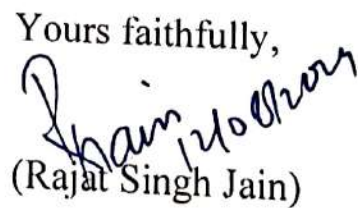 Yours faithfully,
RJain 12/08/2024
(Rajat Singh Jain)